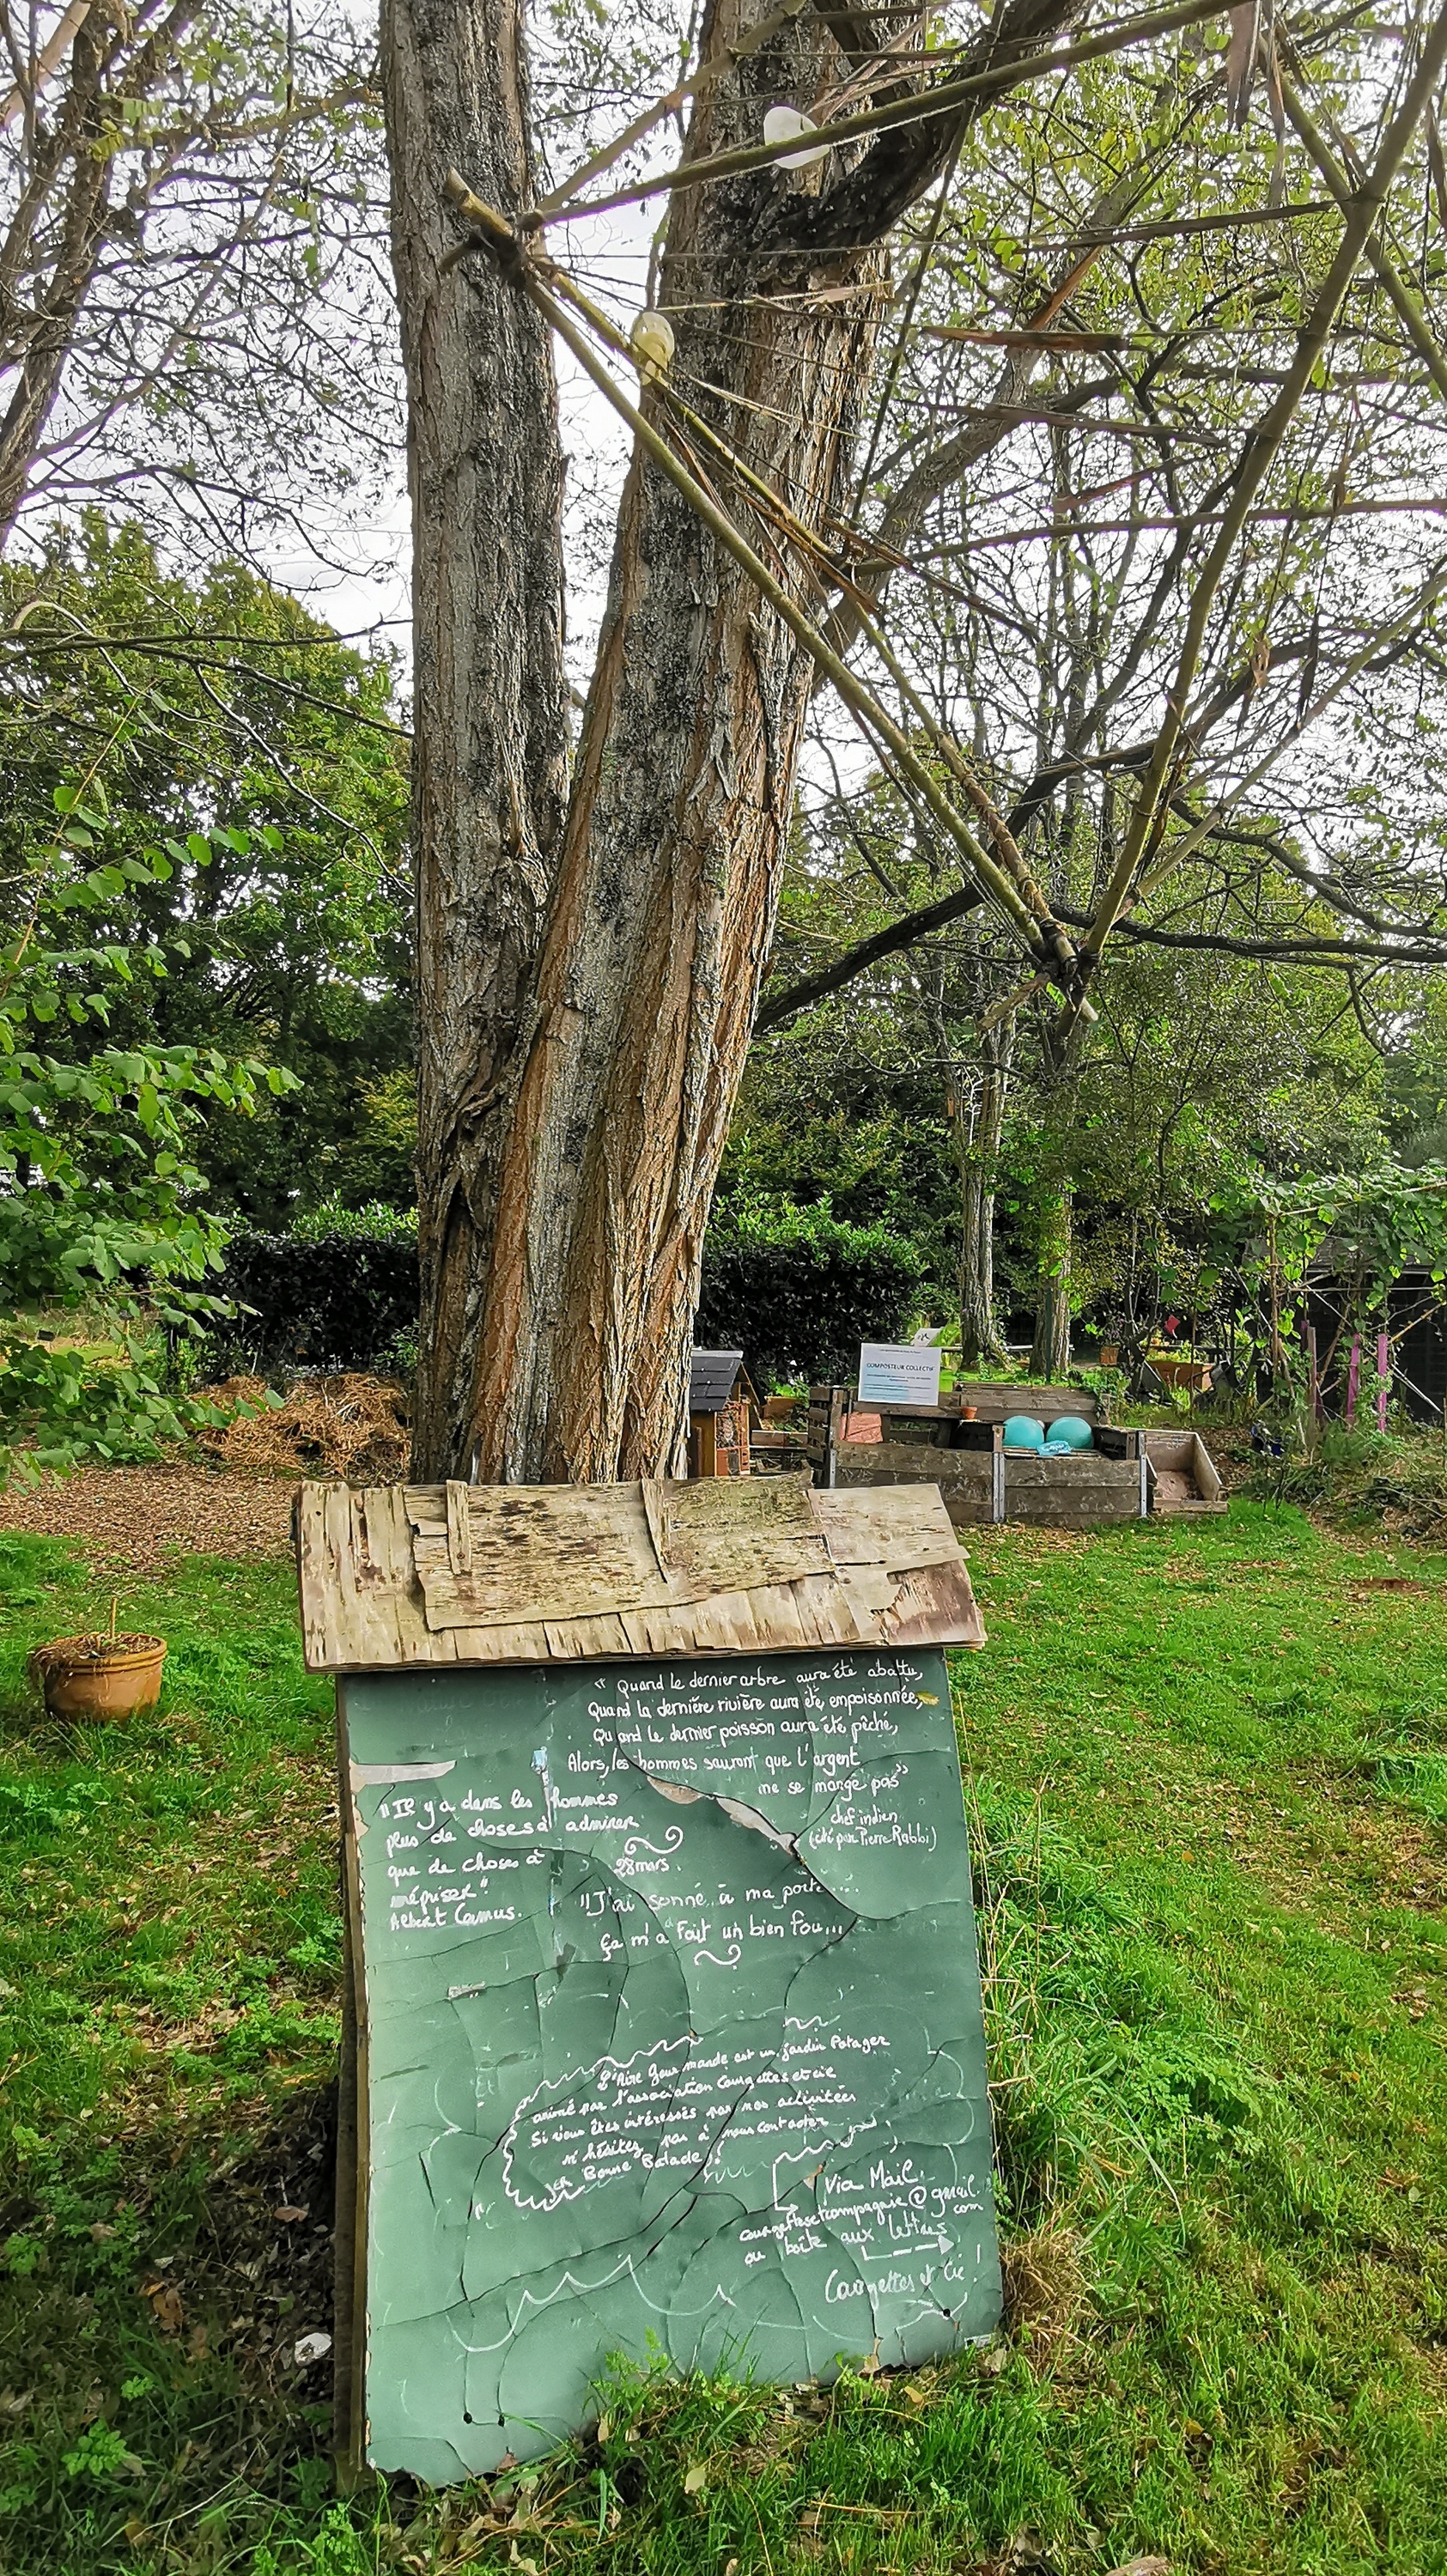 COMPOSTEUR COLLECTIF
"Quand le dernier arbre aura été abattu,
Quand la dernière rivière aura été empoisonnée,
Quand le dernier poisson aura été pêché,
Alors, les hommes sauront que l'argent
ne se mange pas"
chef indien
(cité par Pierre Rabbi)
"Il y a dans les hommes
plus de choses à admirer
que de choses à
mépriser".
Albert Camus.
28 mars.
"J'ai sonné à ma porte...
ça m'a fait un bien fou...
L'Aire Gourmande est un jardin Potager
animé par l'association Courgettes et cie
Si vous êtes intéressés par nos activitées
n'hésitez pas à nous contacter
Bonne Balade!
Via Mail
courgettesetcompagnie@gmail.
com
ou boîte aux lettres
Courgettes et Cie!